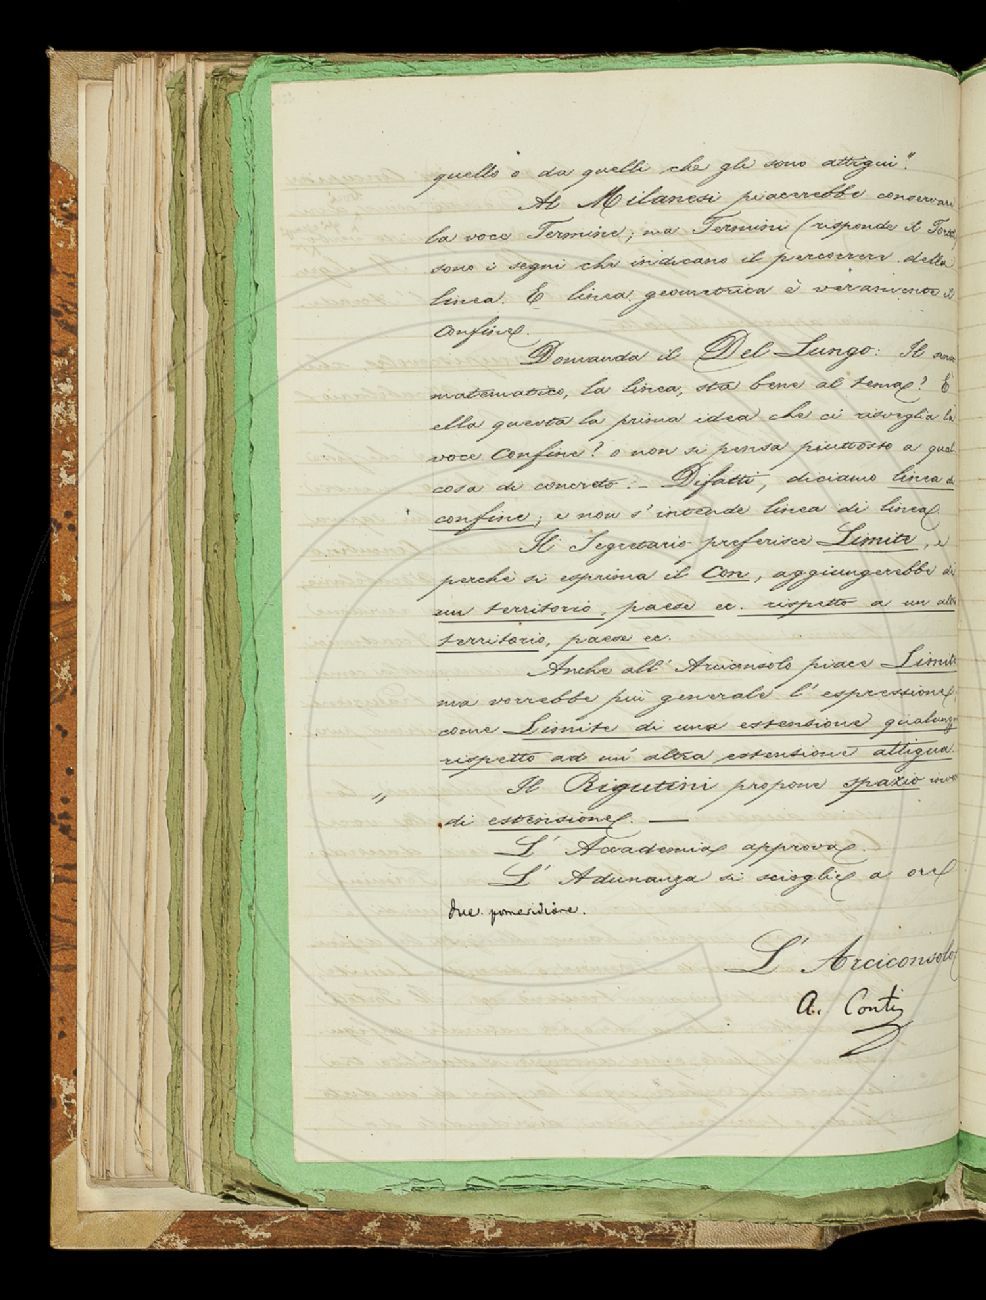 quello o da quelli che gli sono attigui."
Al Milanesi piacerebbe conservare
la voce Termine; ma Termini (risponde il
sono i segni che indicano il percorrere della
linea. E linea geometrica è veramente il
Confine.
Domanda il Del Lungo: Il
matematico, la linea, sta bene al tema? È
ella questa la prima idea che ci risveglia la
voce Confine? o non si pensa piuttosto a qual
cosa di concreto? – Difatti, diciamo linea di
confine; e non s'intende linea di linea.
Il Segretario preferisce Limite, e
perché si esprima il Con, aggiungerebbe di
un territorio, paese ec. rispetto a un altro
territorio, paese ec.
Anche all'Arciconsolo piace Limite
ma vorrebbe più generale l'espressione,
come Limite di una estensione qualunque
rispetto ad un'altra estensione attigua.
" Il Rigutini propone spazio invece
di estensione. —
L'Accademia approva.
L'Adunanza si scioglie a ore
due pomeridiane.
L'Arciconsolo
A. Conti